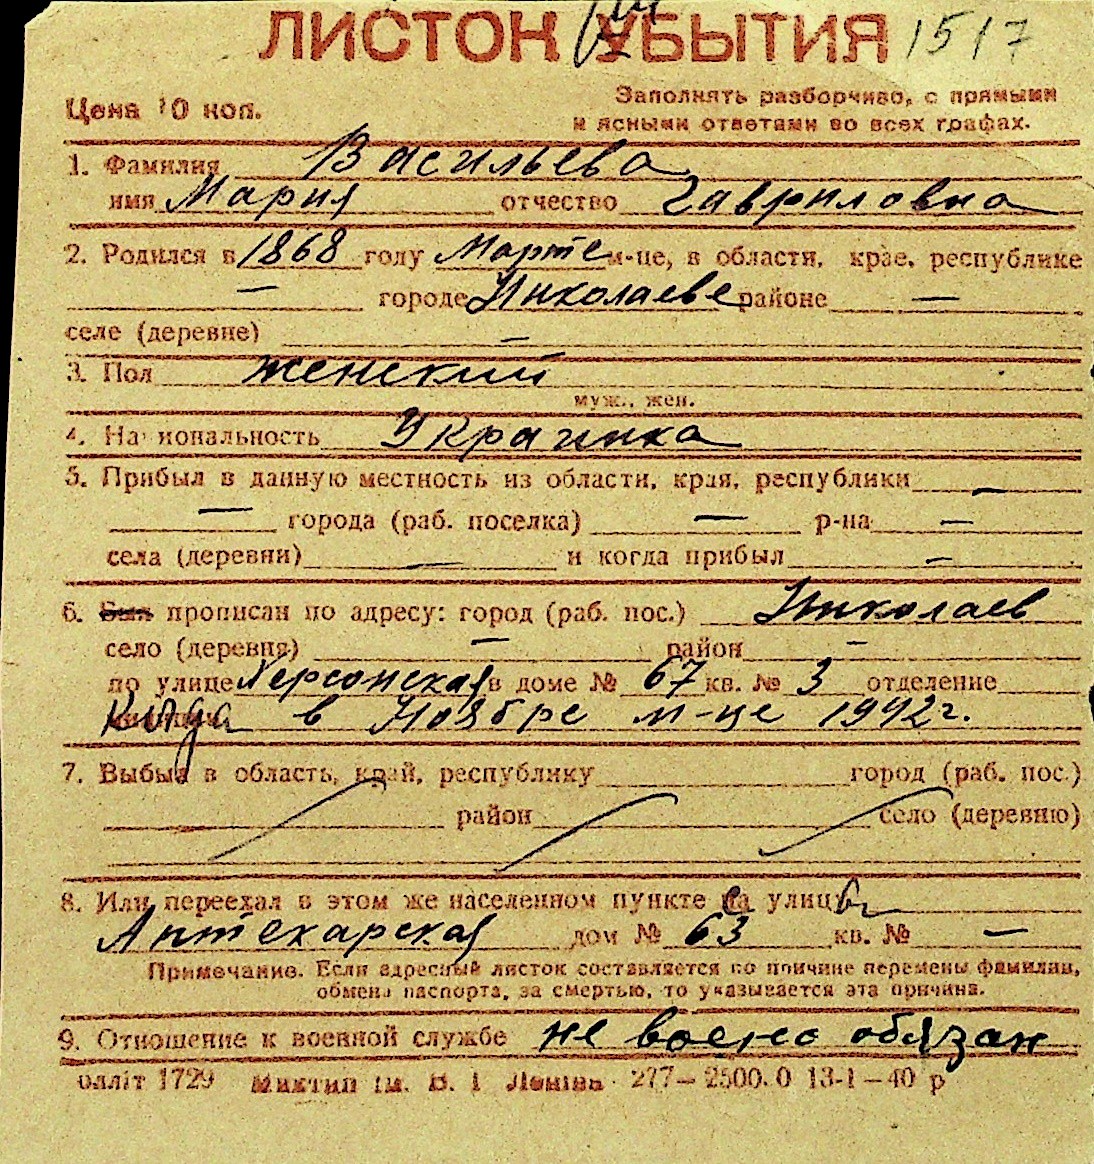 ЛИСТОК УБЫТИЯ 1517
Цена 10 коп.
Заполнять разборчиво, с прямыми
и ясными ответами во всех графах.
1. Фамилия Васильева
имя Мария отчество Гавриловна
2. Родился в 1868 году Марте м-це, в области, крае, республике
— городе Николаеве районе —
селе (деревне) —
3. Пол женский
муж., жен.
4. На иональность Украинка
5. Прибыл в данную местность из области, края, республики —
— города (раб. поселка) — р-на —
села (деревни) — и когда прибыл —
6. Был прописан по адресу: город (раб. пос.) Николаев
село (деревня) — район —
по улице Херсонская в доме № 67 кв. № 3 отделение
Куда в Ноябре м-це 1942 г.
7. Выбыл в область, край, республику город (раб. пос.)
район село (деревню)
8. Или переехал в этом же населенном пункте с улицы
Аптекарская дом № 63 кв. № —
Примечание. Если адресный листок составляется по причине перемены фамилии,
обмена паспорта, за смертью, то указывается эта причина.
9. Отношение к военной службе не воено обязан
олліт 1729 Миктип ім. В. І Леніна 277—2500.0 13-1—40 р